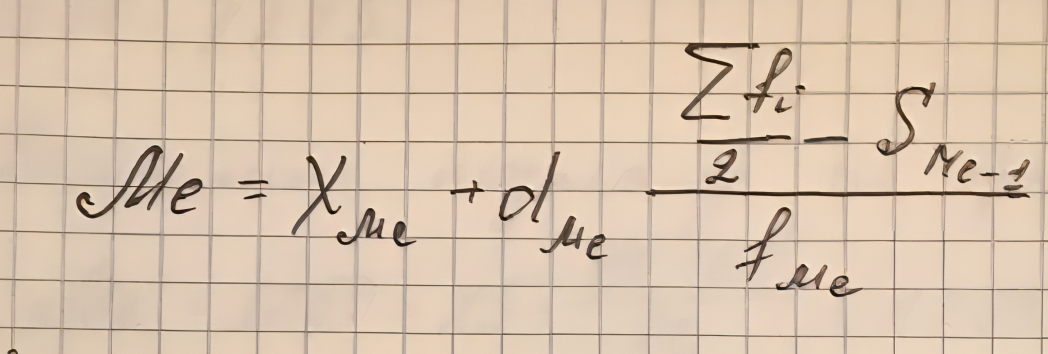 Me = X_{Me} + d_{Me} \frac{\frac{\sum f_i}{2} - S_{Me-1}}{f_{Me}}